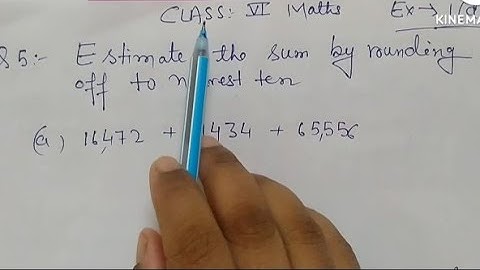 CLASS: VI Maths Ex→
KINEMA
5:- Estimate the sum by rounding
off to nearest ten
(a) 16,472 + 1434 + 65,556